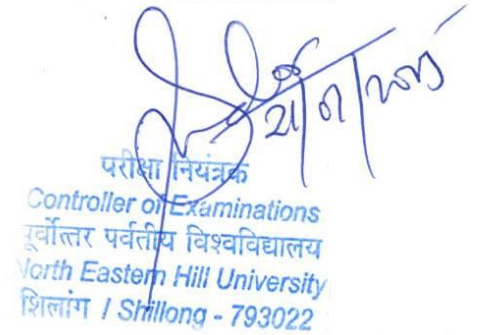 परीक्षा नियंत्रक
Controller of Examinations
पूर्वोत्तर पर्वतीय विश्वविद्यालय
North Eastern Hill University
शिलांग / Shillong - 793022